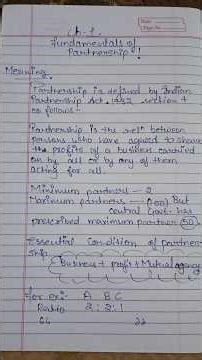 Date
Page No.
Ch-1.
Fundamentals of
Partnership!
Meaning
Partnership is defined by Indian
Partnership Act. 1932, section 4
as follows-
Partnership is the relⁿ between
persons who have agreed to share
the profits of a business carried
on by all or by any of them
acting for all.
Minimum partners - 2
Maximum partners - But
central Govt. has
prescribed maximum partner (50).
Essential condition of partner-
ship
Business + profit + Mutual agency
For ex: A B C
Ratio 2 : 2 : 1